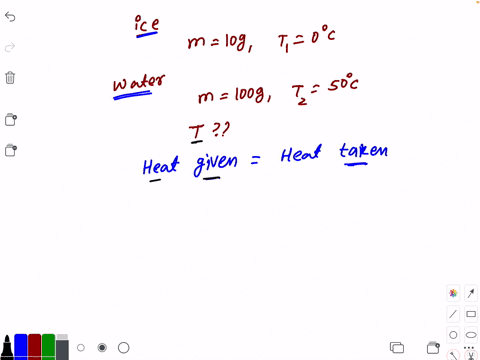 ice
m = 10g, T₁ = 0°C
Water
m = 100g, T₂ = 50°C
T ??
Heat given = Heat taken